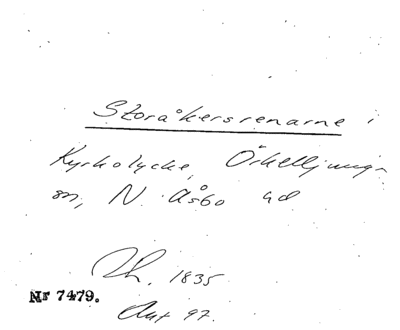 Storåkersrenarne i
Kyrkolycke, Örkelljunga
sn, N. Åsbo hd
Th. 1835
Nr 7479.
Avt 97.